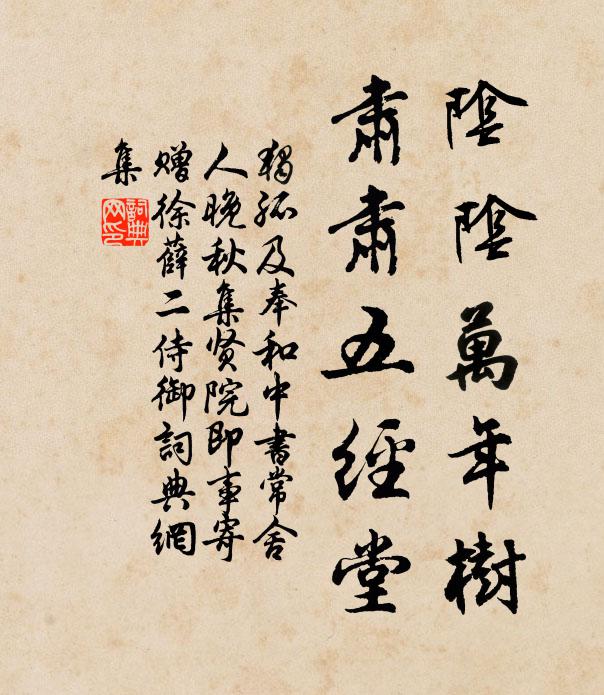 陰陰萬年樹
肅肅五經堂
獨孤及奉和中書常舍
人晚秋集賢院即事寄
贈徐薛二侍御詞典網
集
詞典
网印